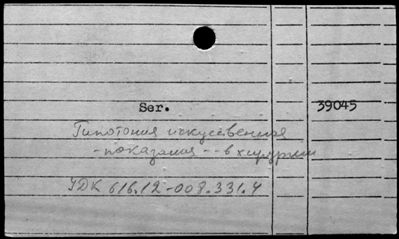 Ser. 39045
Гипотония искусственная
- показания - - в хирургии
УДК 616.12-008.331.4